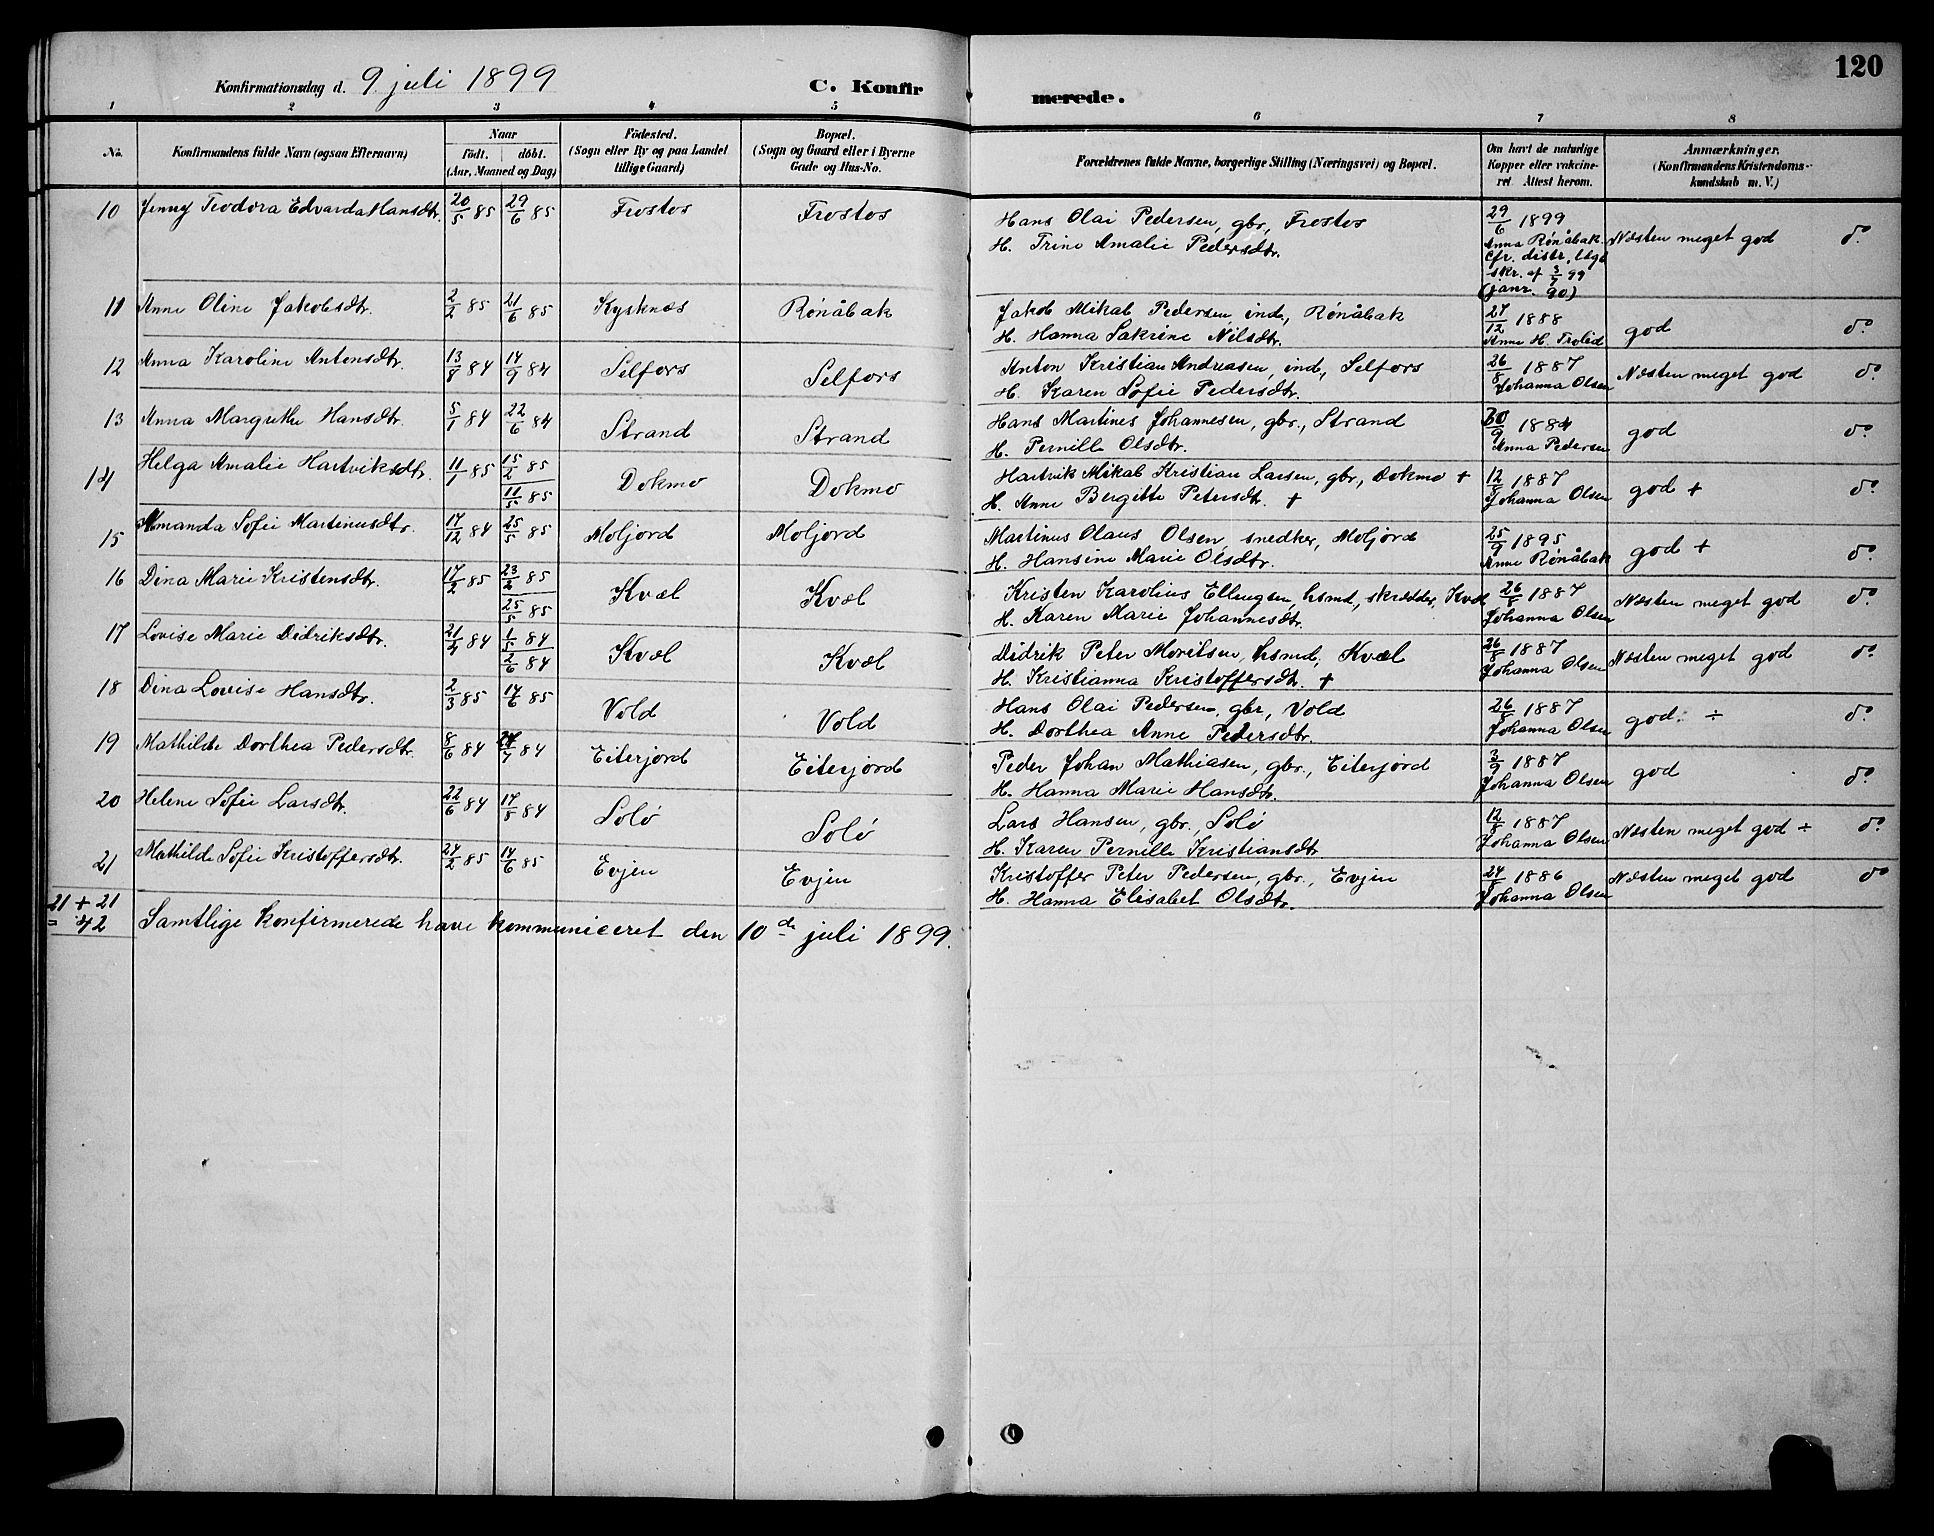 120
Konfirmationsdag d. 9 juli 1899
C. Konfirmerede.
1 2 3 4 5 6 7 8
No.
Konfirmandens fulde Navn (ogsaa Efternavn)
Naar
födt. döbt.
(Aar, Maaned og Dag)
Födested.
(Sogn eller By og paa Landet
tillige Gaard)
Bopæl.
(Sogn og Gaard eller i Byerne
Gade og Hus-No.
Forældrenes fulde Navne, borgerlige Stilling (Næringsvei) og Bopæl.
Om havt de naturlige
Kopper eller vakcine-
ret. Attest herom.
Anmærkninger.
(Konfirmandens Kristendoms-
kundskab m. V.)
10 Jenny Teodora Edvarda Hansdtr. 20/5 85 29/6 85 Frostos Frostos Hans Olai Pedersen, gbr., Frostos 29/6 1899
H. Trine Amalie Pedersdtr. Anna Rønåbak Næsten meget god do
cfr. distr. lægs
skr. af 3/7 99
(janr. 90)
11 Anne Oline Jakobsdtr. 2/2 85 21/6 85 Kysknæs Rønåbak Jakob Mikal Pedersen ind., Rønåbak 27/12 1888 god do
H. Hanna Sakrine Nilsdtr. Anne H. Trolid
12 Anna Karoline Antonsdtr. 13/8 84 14/9 84 Selfors Selfors Anton Kristian Andreasen, ind., Selfors 26/8 1887 Næsten meget god do
H. Karen Sofie Pedersdtr. Johanna Olsen
13 Anna Margrethe Hansdtr. 5/1 84 22/6 84 Strand Strand Hans Martines Johannesen, gbr., Strand 30/9 1884 god do
H. Pernille Olsdtr. Anna Pedersen
14 Helga Amalie Hartviksdtr. 11/1 85 15/2 85 11/5 85 Dokmo Dokmo Hartvik Mikal Kristian Larsen, gbr., Dokmo + 12/8 1887 god + do
H. Anne Bergitte Petersdt. + Johanna Olsen
15 Amanda Sofie Martinusdtr. 17/12 84 25/5 85 Moljord Moljord Martinus Olaus Olsen, snedker, Moljord 25/9 1895 god + do
H. Hansine Marie Olsdtr. Anne Rønåbak
16 Dina Marie Kristensdtr. 17/2 85 23/2 85 25/5 85 Kvæl Kvæl Kristen Karolius Ellingsen, hsmd., skrædder, Kvæl 26/8 1887 Næsten meget god do
H. Karen Marie Johannesdtr. Johanna Olsen
17 Lovise Marie Didriksdtr. 21/4 84 1/5 84 2/6 84 Kvæl Kvæl Didrik Peter Moritsen, hsmd., Kvæl 26/8 1887 Næsten meget god do
H. Kristianna Kristoffersdt. + Johanna Olsen
18 Dina Lovise Hansdtr. 2/3 85 14/6 85 Vold Vold Hans Olai Pedersen, gbr., Vold 26/8 1887 god ÷ do
H. Dorthea Anne Pedersdtr. Johanna Olsen
19 Mathilde Dorthea Pedersdtr. 8/6 84 /7 84 Eiterjord Eiterjord Peder Johan Mathiasen, gbr., Eiterjord 3/9 1887 god do
H. Hanna Marie Hansdtr. Johanna Olsen
20 Helene Sofie Larsdtr. 22/6 84 17/8 84 Solø Solø Lars Hansen, gbr., Solø 12/8 1887 Næsten meget god ÷ do
H. Karen Pernille Kristiansdtr Johanna Olsen
21 Mathilde Sofie Kristoffersdtr. 24/2 85 14/6 85 Evjen Evjen Kristoffer Peter Pedersen, gbr., Evjen 24/8 1886 Næsten meget god do
H. Hanna Elisabet Olsdtr. Johanna Olsen
21 + 21
= 42
Samtlige konfirmerede have kommuniceret den 10de juli 1899.